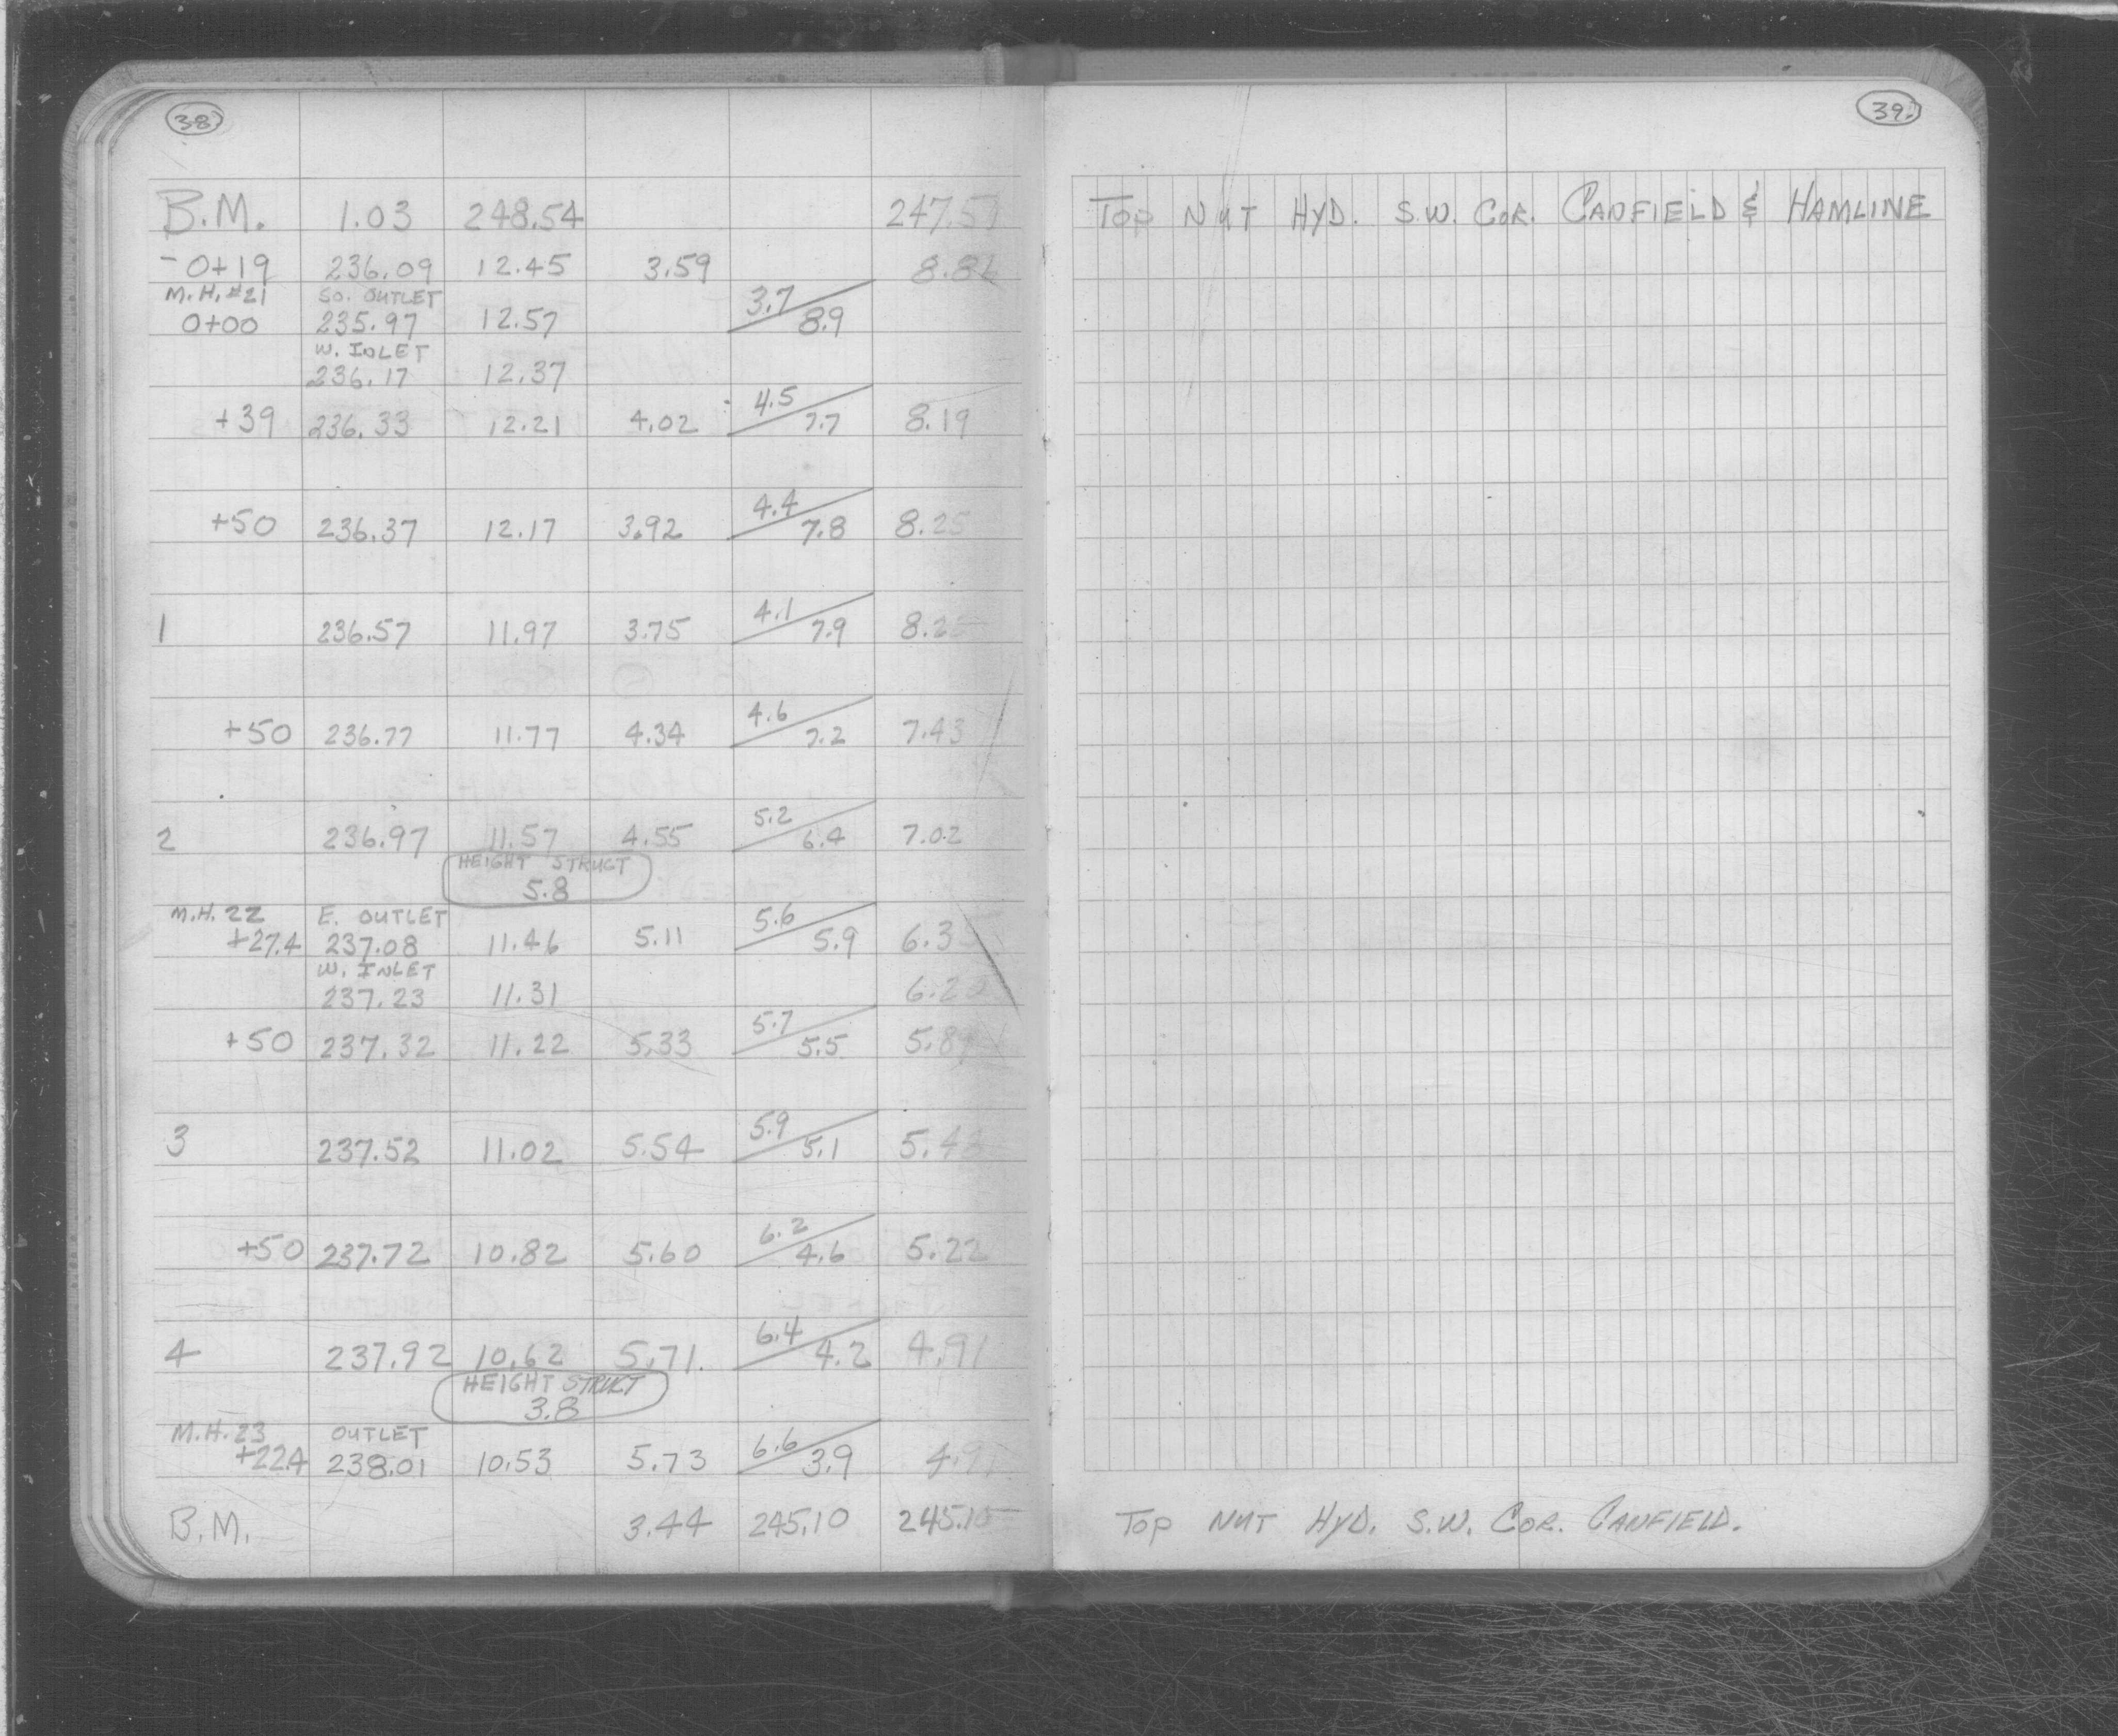 38
B.M. 1.03 248.54 247.51
-0+19 236.09 12.45 3.59 8.86
M.H.#21 SO. OUTLET
0+00 235.97 12.57 3.7/8.9
W. INLET
236.17 12.37
+39 236.33 12.21 4.02 4.5/7.7 8.19
+50 236.37 12.17 3.92 4.4/7.8 8.25
1 236.57 11.97 3.75 4.1/7.9
+50 236.77 11.77 4.34 4.6/7.2 7.43
2 236.97 11.57 4.55 5.2/6.4 7.02
HEIGHT STRUCT
5.8
M.H. 22 E. OUTLET
+27.4 237.08 11.46 5.11 5.6/5.9
W. INLET
237.23 11.31
+50 237.32 11.22 5.33 5.7/5.5 5.89
3 237.52 11.02 5.54 5.9/5.1 5.48
+50 237.72 10.82 5.60 6.2/4.6 5.22
4 237.92 10.62 5.71. 6.4/4.2 4.91
HEIGHT STRUCT
3.8
M.H. 23 OUTLET
+22.4 238.01 10.53 5.73 6.6/3.9
B.M. 3.44 245.10 245.15
39.
TOP NUT HYD. S.W. COR. CANFIELD & HAMLINE
TOP NUT HYD. S.W. COR. CANFIELD.